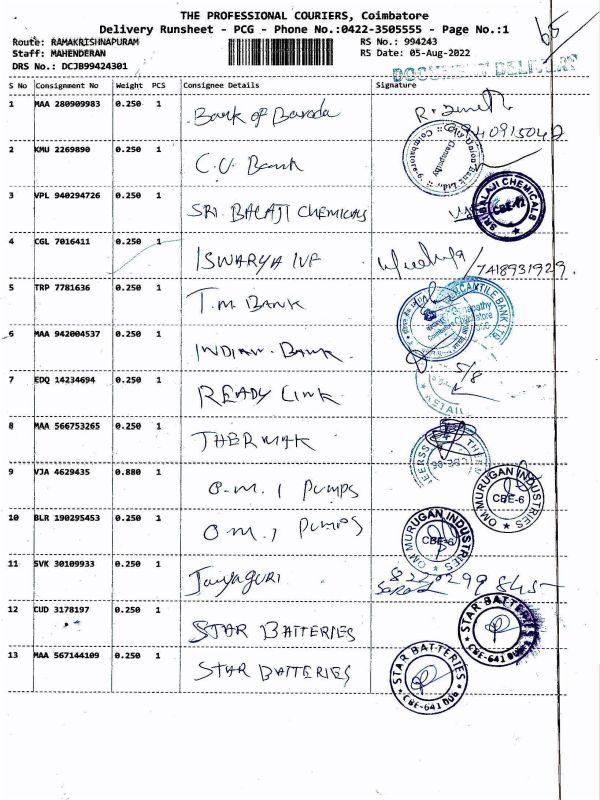 65
THE PROFESSIONAL COURIERS, Coimbatore
Delivery Runsheet - PCG - Phone No.:0422-3505555 - Page No.:1
Route: RAMAKRISHNAPURAM RS No.: 994243
Staff: MAHENDERAN RS Date: 05-Aug-2022
DRS No.: DCJB99424301
DOCUMENT DELIVERY
S No Consignment No Weight PCS Consignee Details Signature
1 MAA 280909983 0.250 1 Bank of Baroda
2 KMU 2269890 0.250 1 C.U. Bank
3 VPL 940294726 0.250 1 SRI. BALAJI CHEMICALS
SRI BALAJI CHEMICALS CBE-12
4 CGL 7016411 0.250 1 ISWARYA IVF 7418931929.
5 TRP 7781636 0.250 1 T.M. BANK
6 MAA 942004537 0.250 1 INDIAN. Bank
7 EDQ 14234694 0.250 1 READY LINK 5/8
8 MAA 566753265 0.250 1 THERMAK
9 VJA 4629435 0.880 1 O.M. 1 PUMPS
OM MURUGAN INDUSTRIES CBE-6
10 BLR 190295453 0.250 1 O.M. 1 PUMPS
OM MURUGAN INDUSTRIES CBE-6
11 SVK 30109933 0.250 1
12 CUD 3178197 0.250 1 STAR BATTERIES
STAR BATTERIES CBE-641 006
13 MAA 567144109 0.250 1 STAR BATTERIES
STAR BATTERIES CBE-641 006